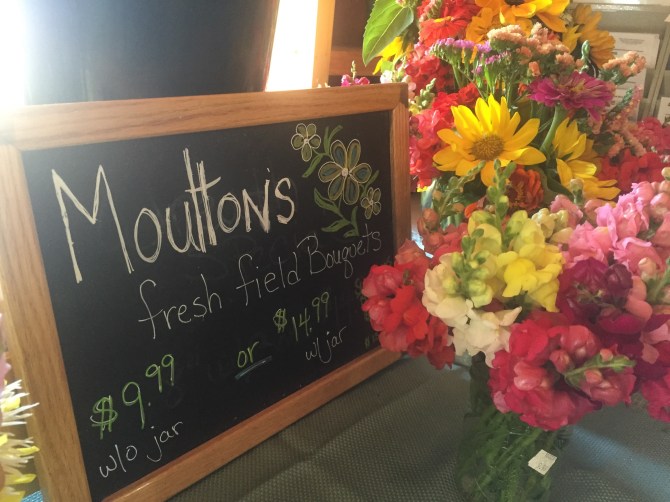 Moulton's
fresh field Bouquets
$9.99 or $14.99
w/o jar w/ jar